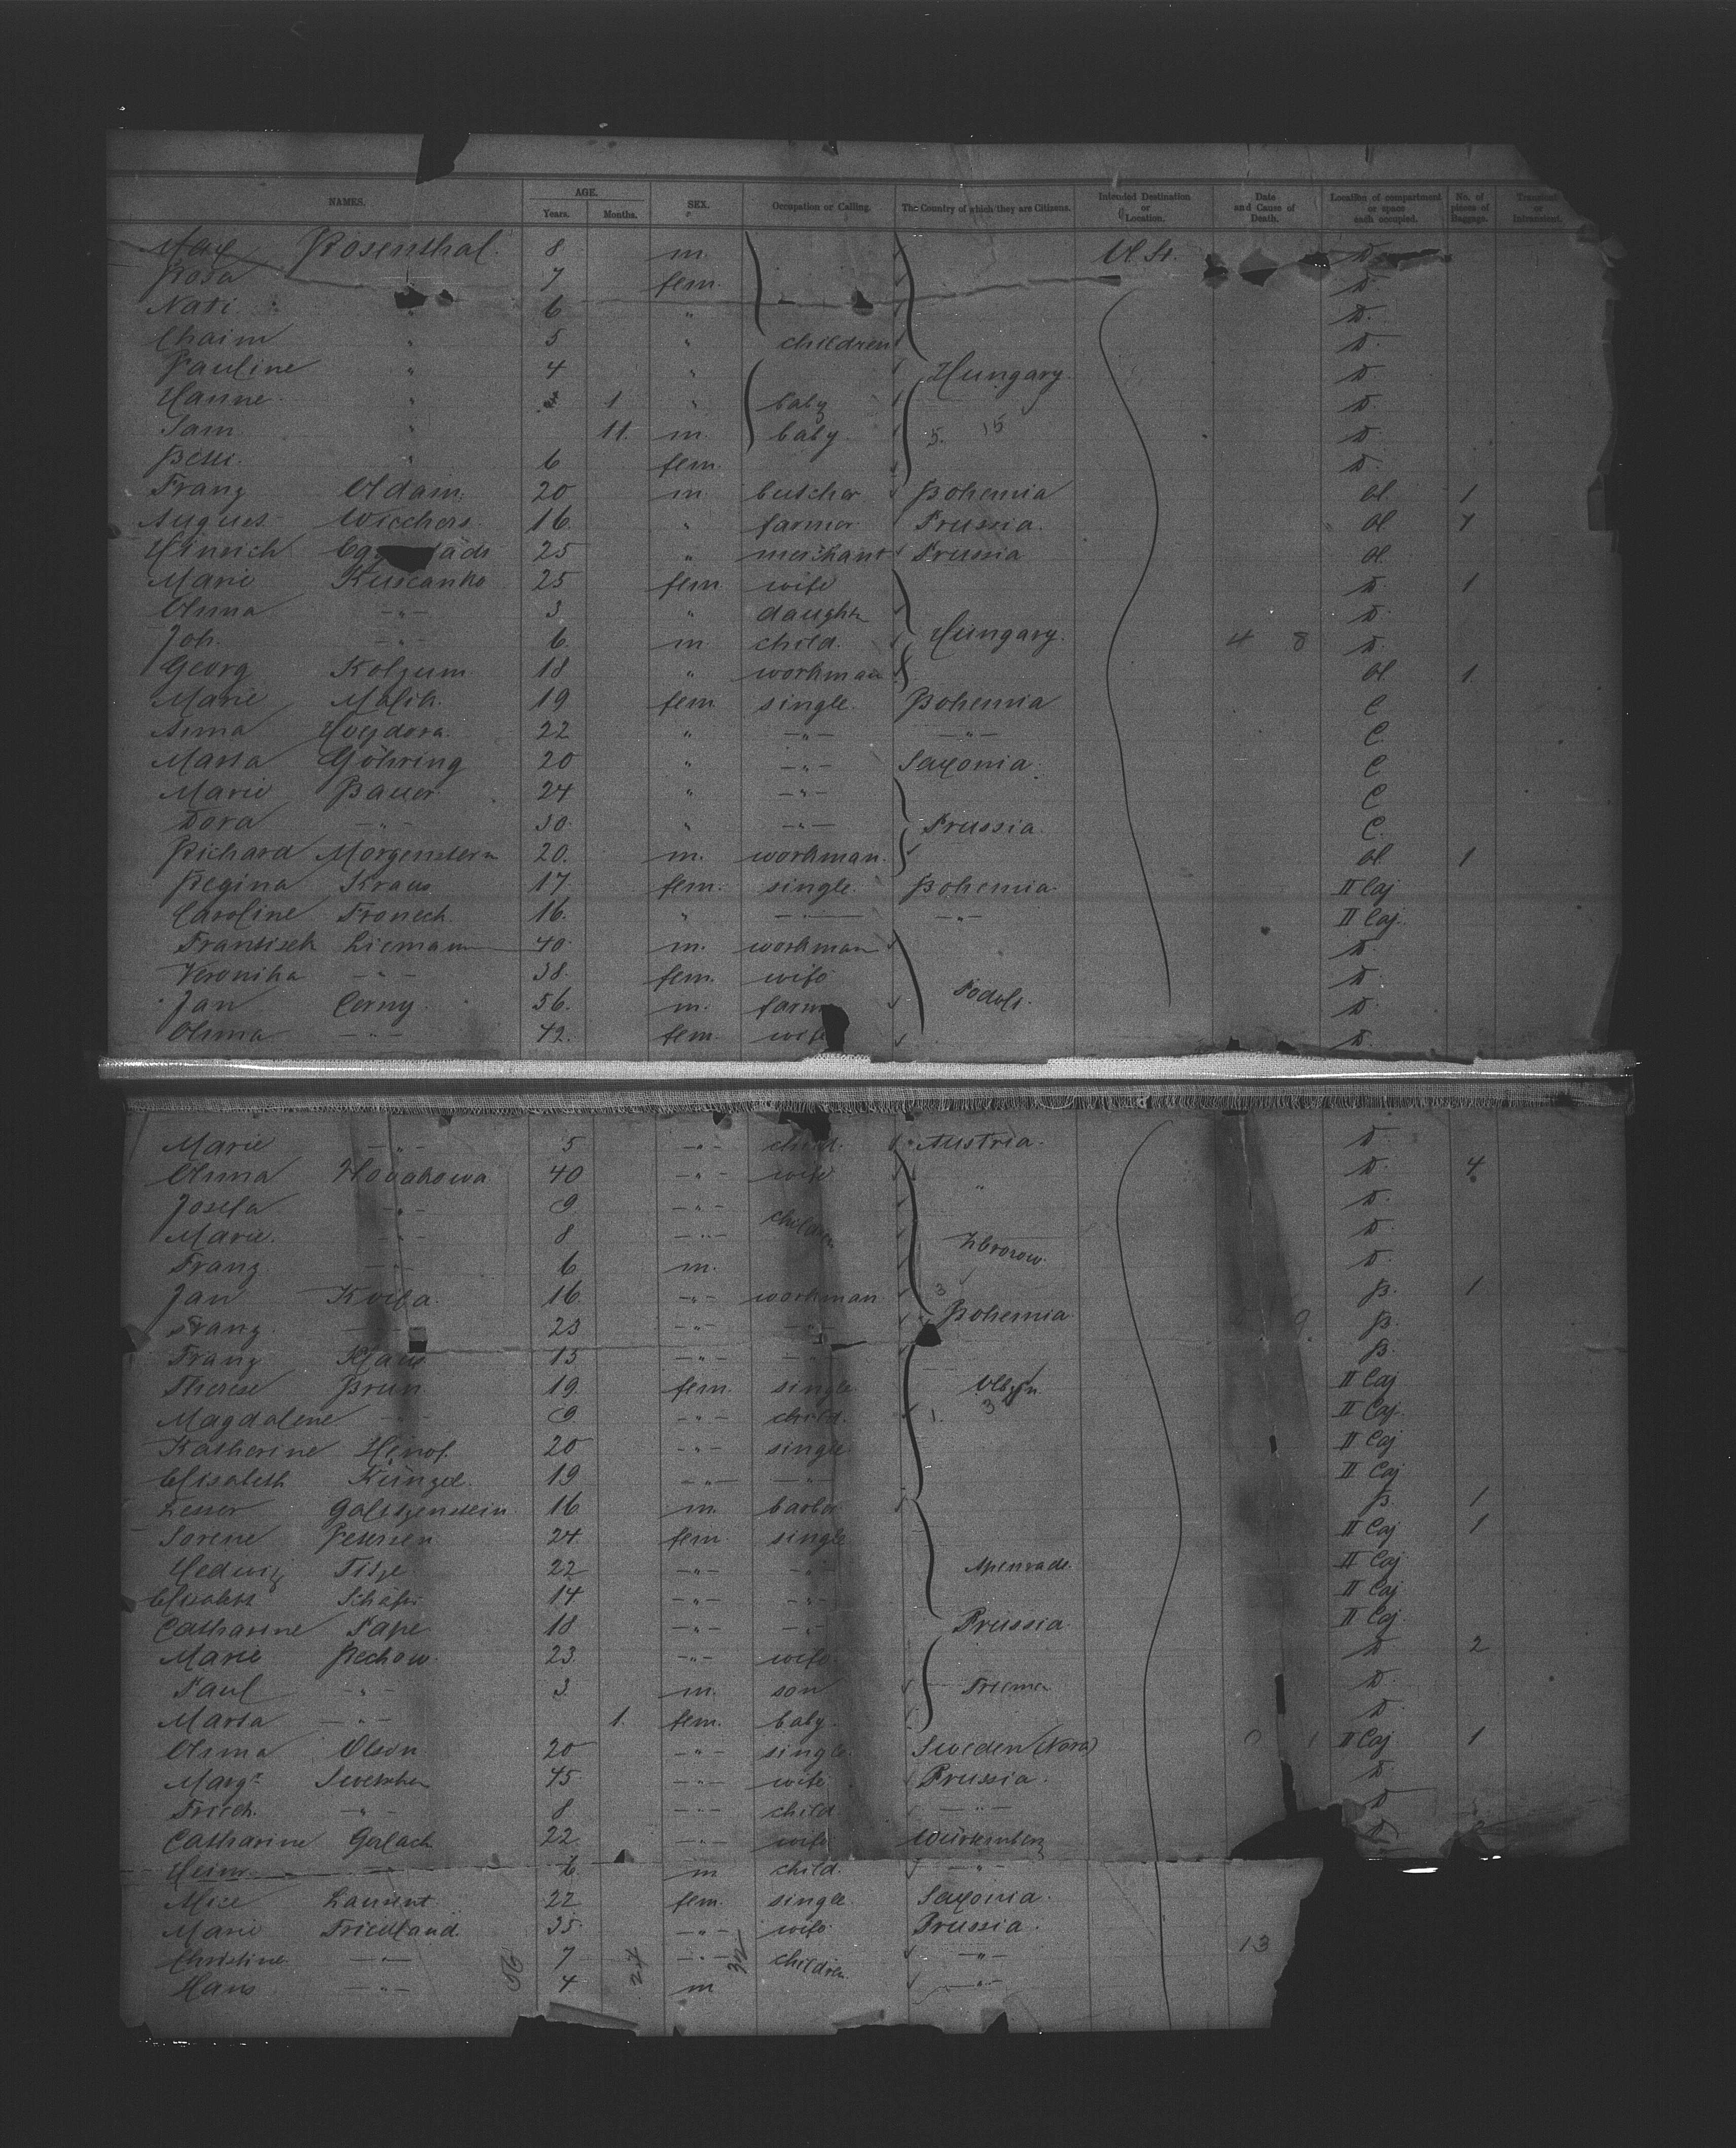 NAMES. AGE. Years. Months. SEX. Occupation or Calling. The Country of which they are Citizens. Intended Destination or Location. Date and Cause of Death. Location of compartment or space each occupied. No. of pieces of Baggage. Transient or Intransient.
Max Rosenthal. 8 m. U. St. D.
Rosa 7 fem. D.
Nati " 6 " D.
Chaim " 5 " children D.
Pauline " 4 " Hungary. D.
Hanne " 1 " baby D.
Sam " 11. m. baby. 5. 15 D.
" 6 fem. D.
Franz Adam. 20 m butcher Bohemia A. 1
August Wiechers 16 " farmer Prussia. A 1
Hinrich 25 " merchant Prussia A.
Marie 25 fem. wife D. 1
Anna -"- 3 " daughtr D.
Joh. -"- 6 m child. Hungary. 4 8 D.
Georg 18 " workman A. 1
Marie Malik. 19 fem single. Bohemia C
Anna 22 " -"- -"- C.
Marta Göhring 20 " -"- Saxonia. C
Marie Bauer 24 " -"- C
Dora -"- 30. " -"- Prussia. C.
Richard Morgenstern 20. m. workman. A. 1
Regina Kraus 17. fem. single. Bohemia. II Caj
Caroline 16. " -"- -"- II Caj.
Frantisek 40. m. workman D.
Veronika -"- 38. fem. wife D.
Jan Cerny. 56. m. D.
Anna -"- 42. fem. wife D.
Marie -"- 5 -"- child. Austria. D.
Anna 40 -"- wife " D. 4
Josefa -"- 9 -"- D.
Marie. -"- 8 -"- children D.
Franz -"- 6 m. Zborow. D.
Jan 16. -"- workman 3 B. 1
Franz. -"- 23 -"- -"- Bohemia B.
Franz 15 -"- -"- B.
Therese Brun 19. fem. single II Caj
Magdalene -"- 9 -"- child. 1. 3 II Caj.
Katherine 20 -"- single II Caj
Elisabeth Küngel. 19 -"- -"- II Caj
Lesser 16 m. barber B. 1
Sorene Petersen 24. fem. single II Caj 1
Hedwig 22 -"- -"- Apenrade. II Caj
Elisabeth Schäfer 14 -"- -"- II Caj
Catharine Pape 18 -"- -"- Prussia. II Caj.
Marie Rechow. 23. -"- wife D 2
Paul -"- 3. m. son D.
Marta -"- 1. fem. baby. D
Anna Olson 20 -"- single. Sweden II Caj 1
Margt. 45 -"- wife Prussia. D
Friedr. -"- 8 -"- child -"- D
Catharine Gerlach 22 -"- wife Würtemberg D
Heinr. -"- 6 m child. -"-
Alice Laurent 22 fem. single. Saxonia.
Marie Friedland. 35 -"- wife Prussia.
Christine -"- 7 -"- children. -"- 13
Hans -"- 4 m -"-
56 24 32